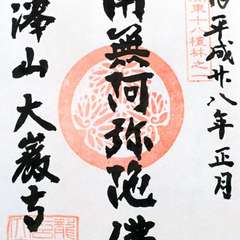 平成廿八年正月
関東十八檀林之
南無阿弥陀佛
澤山大巌寺